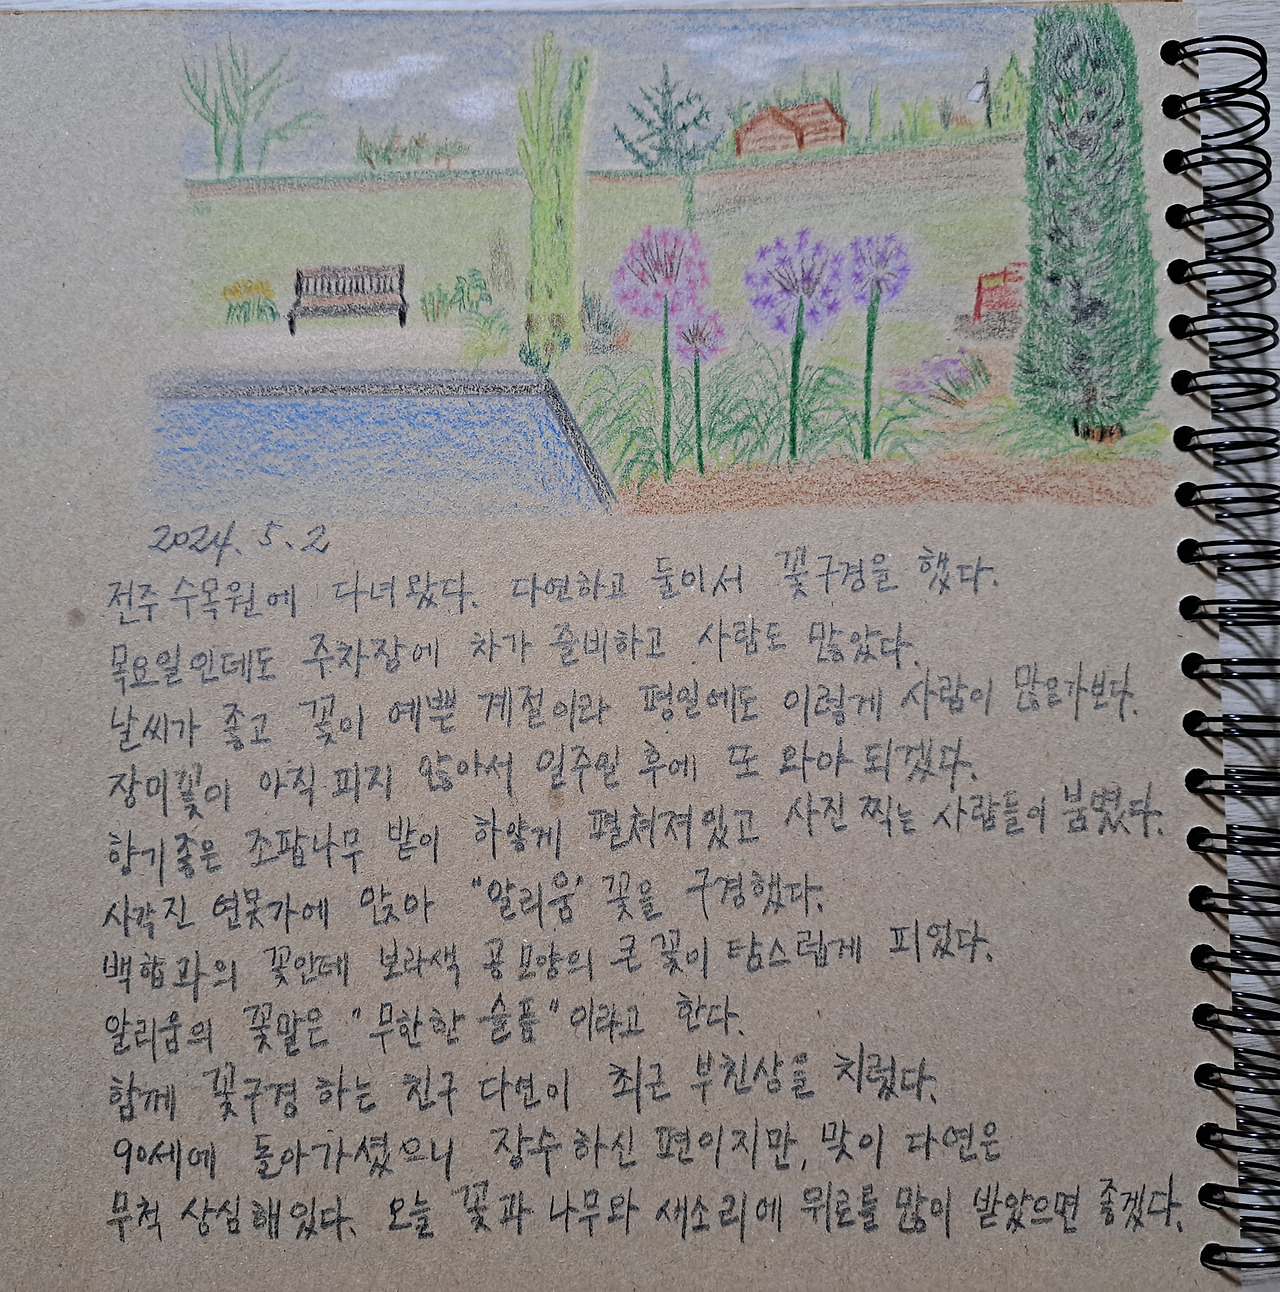 2024. 5. 2
전주 수목원에 다녀왔다. 다연하고 둘이서 꽃구경을 했다.
목요일인데도 주차장에 차가 즐비하고 사람도 많았다.
날씨가 좋고 꽃이 예쁜 계절이라 평일에도 이렇게 사람이 많은가보다.
장미꽃이 아직 피지 않아서 일주일 후에 또 와야 되겠다.
향기좋은 조팝나무 밭이 하얗게 펼쳐져있고 사진 찍는 사람들이 붐볐다.
사각진 연못가에 앉아 "알리움" 꽃을 구경했다.
백합과의 꽃인데 보라색 공모양의 큰 꽃이 탐스럽게 피었다.
알리움의 꽃말은 "무한한 슬픔"이라고 한다.
함께 꽃구경 하는 친구 다연이 최근 부친상을 치렀다.
90세에 돌아가셨으니 장수하신 편이지만, 맞이 다연은
무척 상심해있다. 오늘 꽃과 나무와 새소리에 위로를 많이 받았으면 좋겠다.